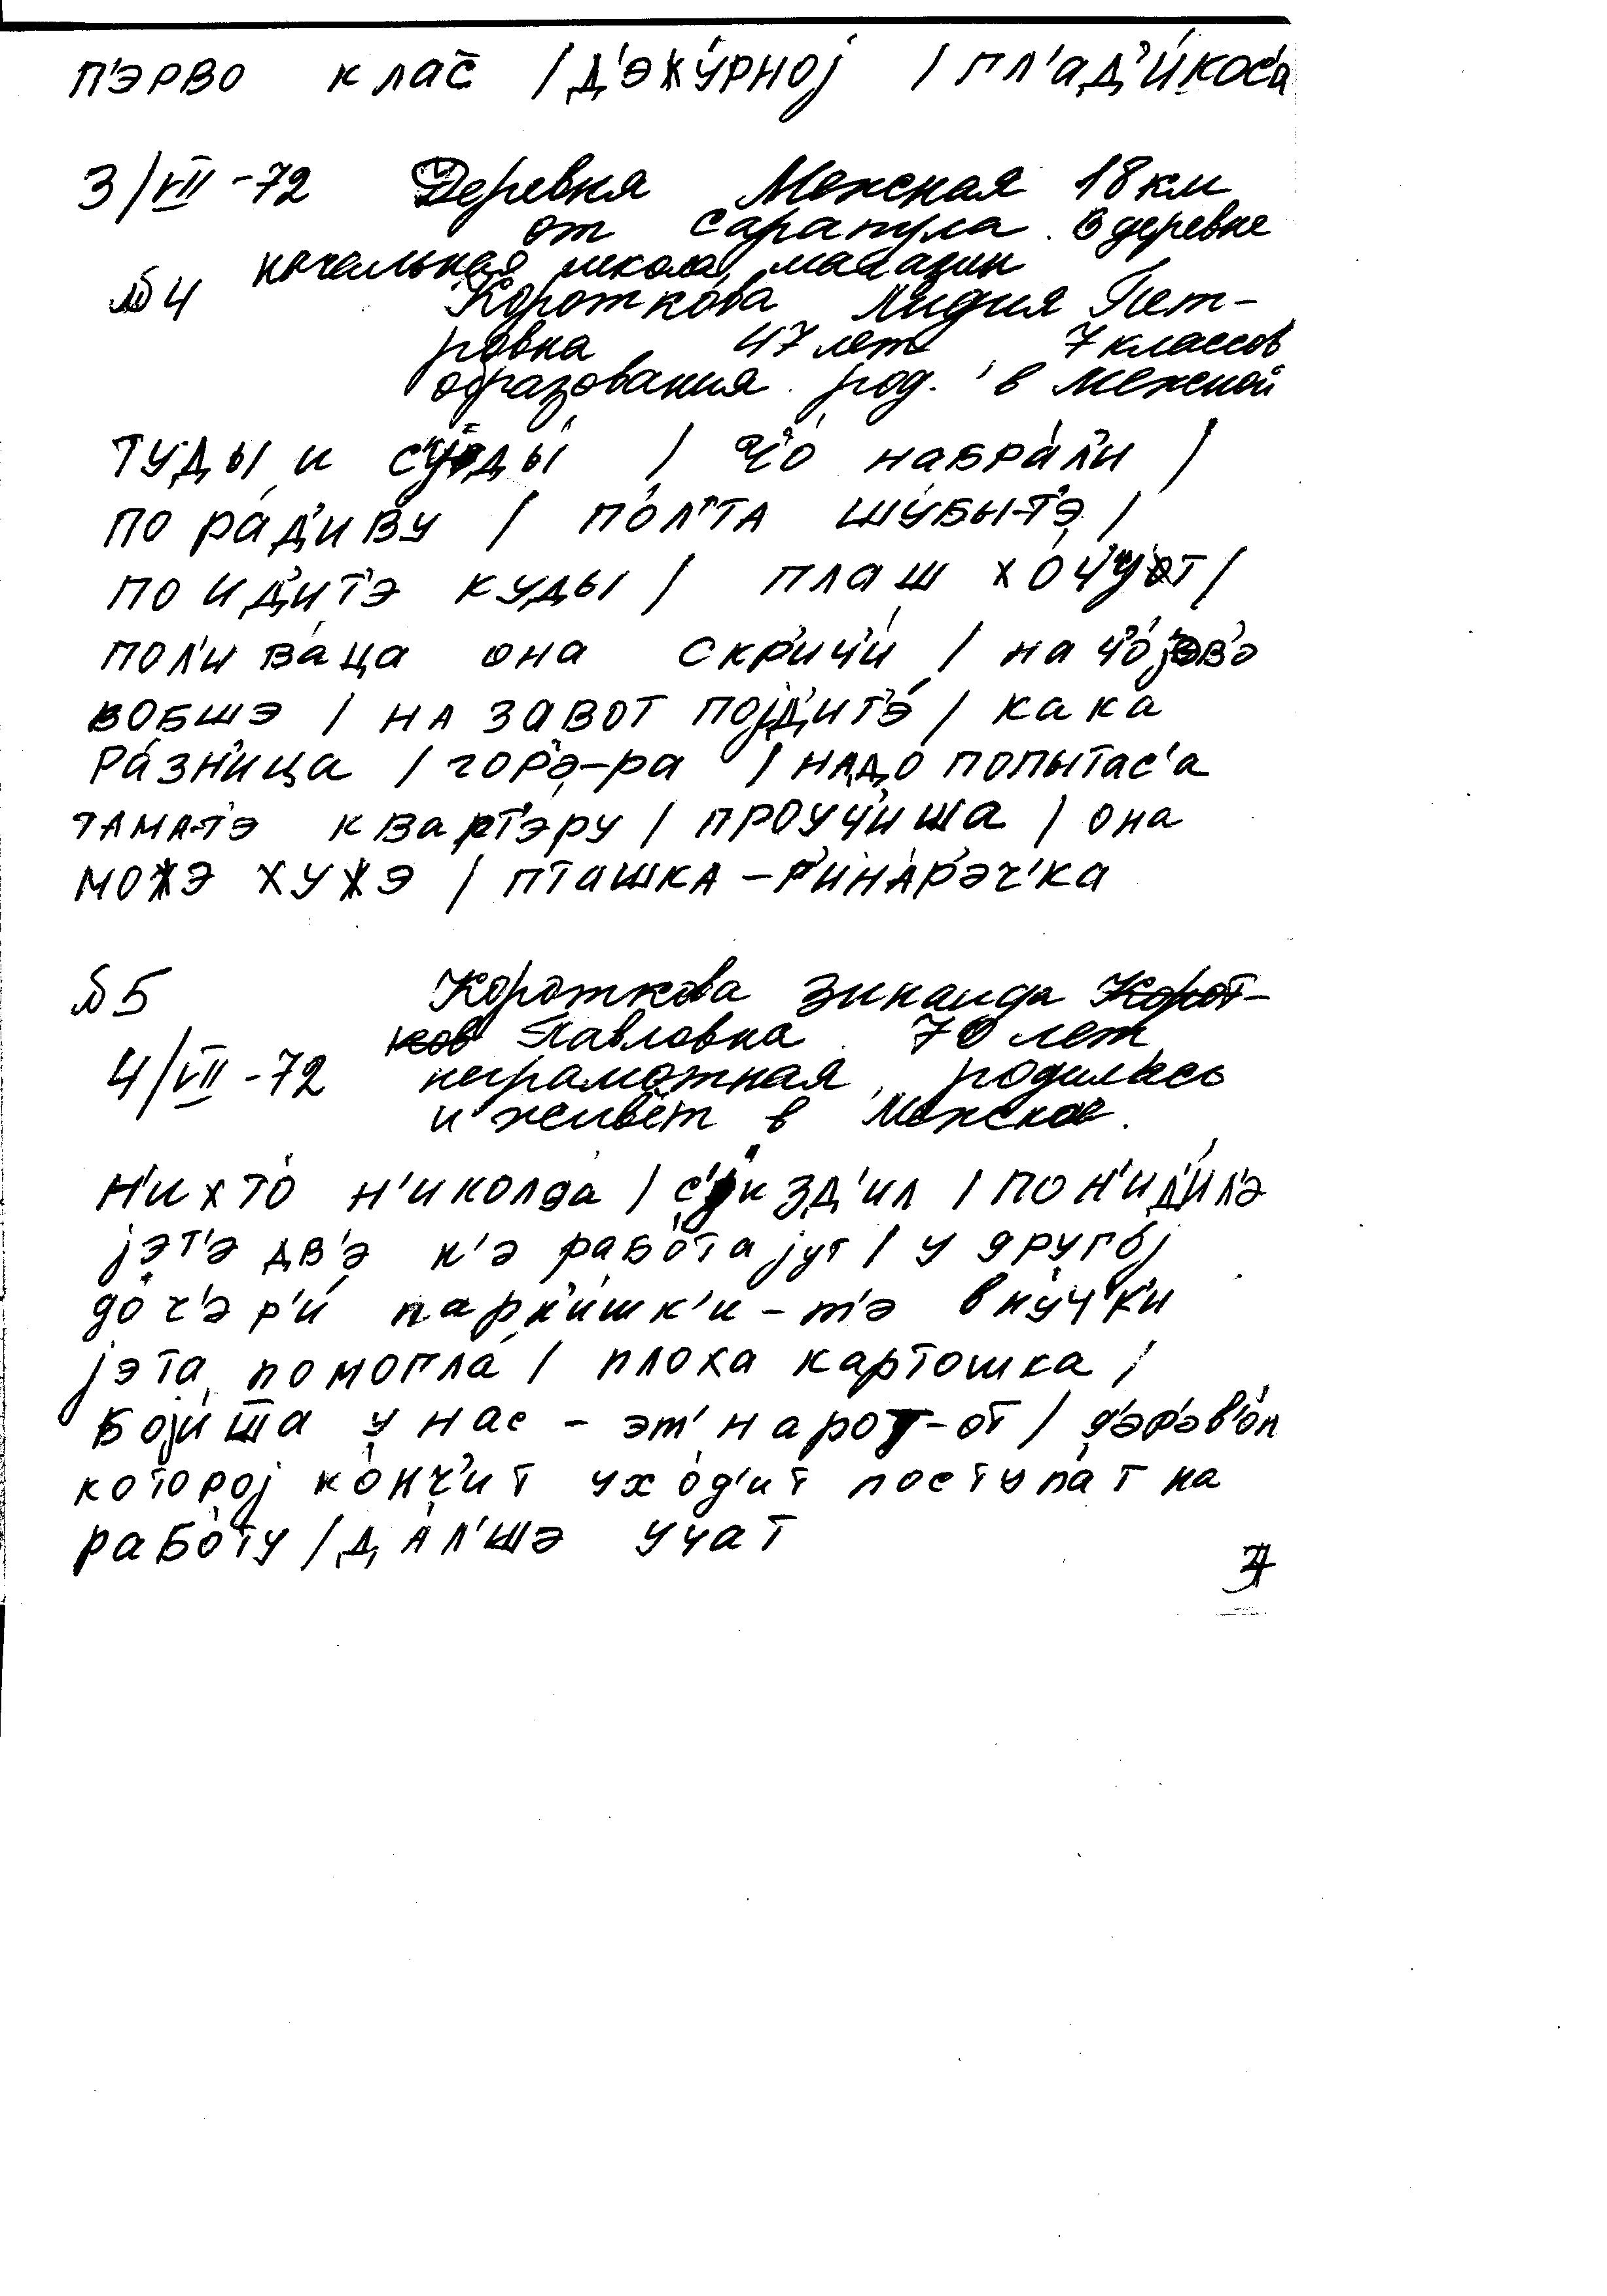 п'эрво клас̄ / д'эжу́рној / гл'ад'и́кос'а
3/VII-72 Деревня Межная 18 км
от Сарапула. В деревне
начальная школа, магазин
№4 Коротко́ва Лидия Пет-
ровна 47 лет, 7 классов
образования. род. в Межной
туды́ и с'уды́ / ч'о набра́л'и /
по ра́д'иву / по́л'та шу́бы-т'э /
поид'ит'э куды / плаш хо́ч'ут /
пол'ива́ца она скр'ич'и́ / на ч'о́ јэво
вобшэ / на завот појд'ит'э́ / кака
ра́зн'ица / гор'э-ра / на́до попыта́с'а
тама-т'э кварт'э́ру / проуч'и́ша / она
можэ хужэ / пташка - р'ина́р'эч'ка
№5 Короткова Зинаида
Павловна. 70 лет
4/VII-72 неграмотная, родилась
и живёт в Межной.
н'ихто́ н'иколда / с'йизд'ил / по н'ид'и́л'э
јэт'э дв'э н'э рабо́тајут / у друго́ј
до́ч'эр'и́ парн'ишк'и-т'э вну́ч'к'и
јэта помогла́ / плоха картошка /
боји́ш̄а у нас - эт' народ-от / д'эр'эв'о́н
которој ко́нч'ит ухо́д'ит поступа́т на
рабо́ту / да́л'шэ учат